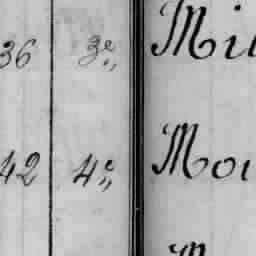 36 3e,, Mil
42 4e,, Moi